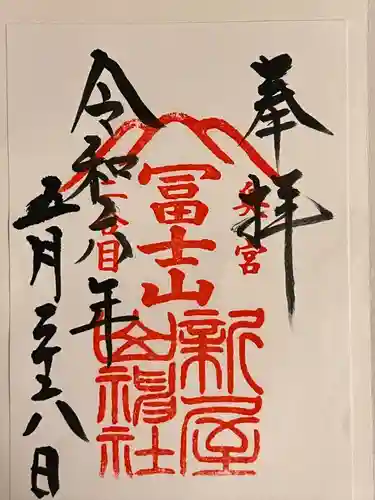 奉拝
奥宮
冨士山
二合目
新屋
山神社
令和 年
五月二十八日